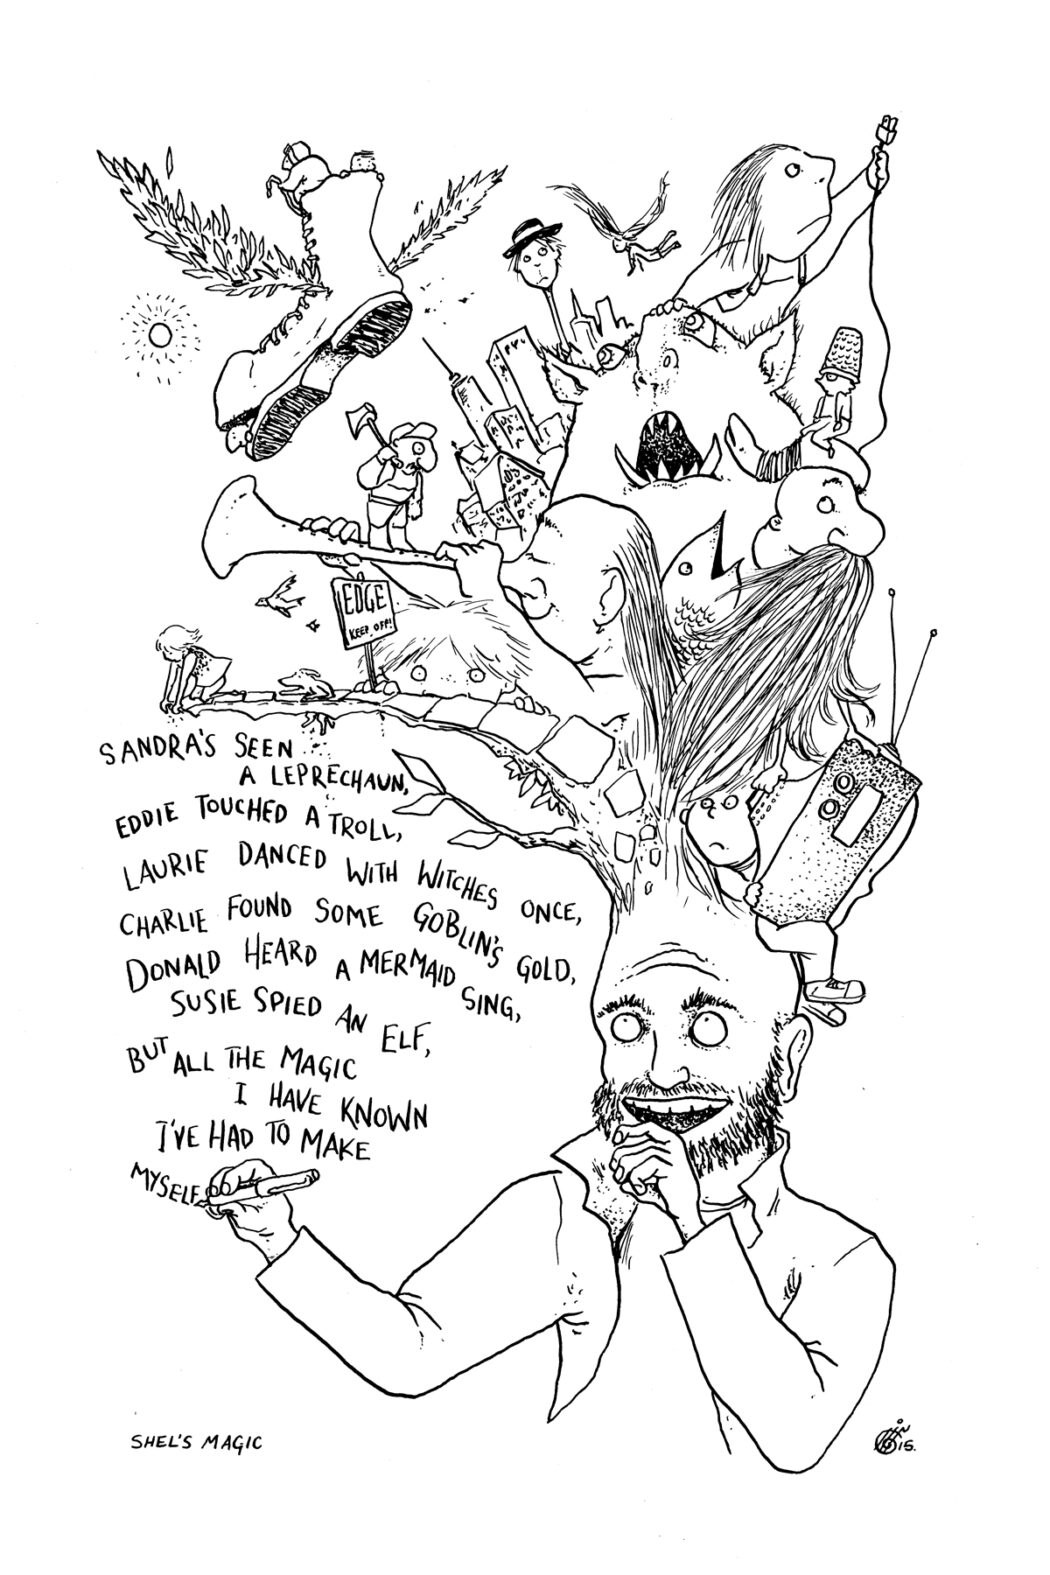 EDGE
KEEP OFF!
SANDRA'S SEEN
A LEPRECHAUN,
EDDIE TOUCHED A TROLL,
LAURIE DANCED WITH WITCHES ONCE,
CHARLIE FOUND SOME GOBLIN'S GOLD,
DONALD HEARD A MERMAID SING,
SUSIE SPIED AN ELF,
BUT ALL THE MAGIC
I HAVE KNOWN
I'VE HAD TO MAKE
MYSELF.
SHEL'S MAGIC
15.